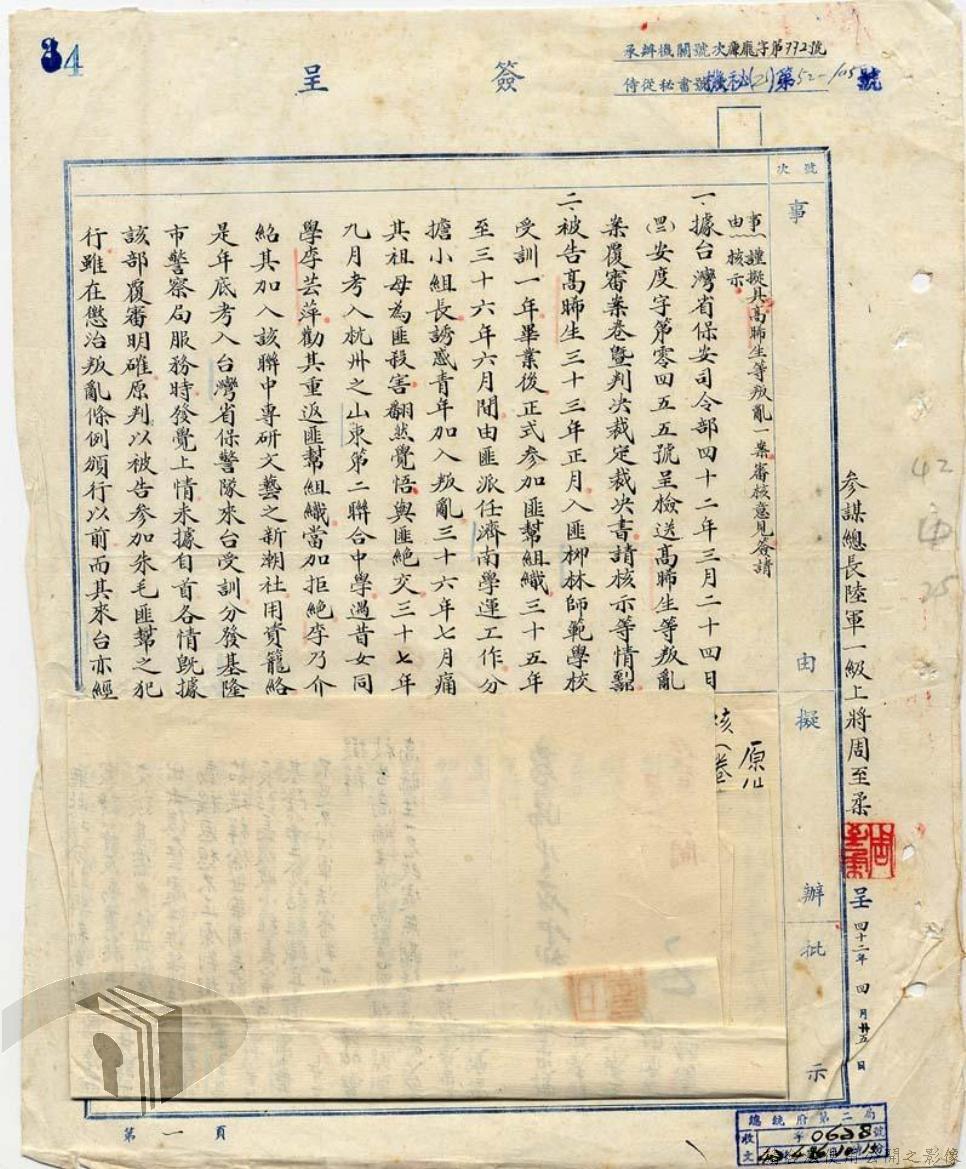 34
承辦機關號次廉龐字第772號
侍從秘書號機秘(2)第52-105號
簽呈
號次
事由擬辦批示
參謀總長陸軍一級上將周至柔
呈 四十二年四月廿五日
42
25
事由 謹擬具高昞生等叛亂一案審核意見簽請
核示
一、據台灣省保安司令部四十二年三月二十四日
(四)安度字第零四五五號呈檢送高昞生等叛亂
案覆審案卷暨判決裁定裁決書請核示等情
二、被告高昞生三十三年正月入匪柳林師範學校
受訓一年畢業後正式參加匪幫組織三十五年
至三十六年六月間由匪派任濟南學運工作分
擔小組長誘惑青年加入叛亂三十六年七月痛
其祖母為匪殺害翻然覺悟與匪絕交三十七年
九月考入杭州之山東第二聯合中學遇昔女同
學李芸萍勸其重返匪幫組織當加拒絕李乃介
紹其加入該聯中專研文藝之新潮社用資籠絡
是年底考入台灣省保警隊來台受訓分發基隆
市警察局服務時發覺上情未據自首各情既據
該部覆審明確原判以被告參加朱毛匪幫之犯
行雖在懲治叛亂條例頒行以前而其來台亦經
原
卷
第一頁
總統府第二局
收文 字0628號